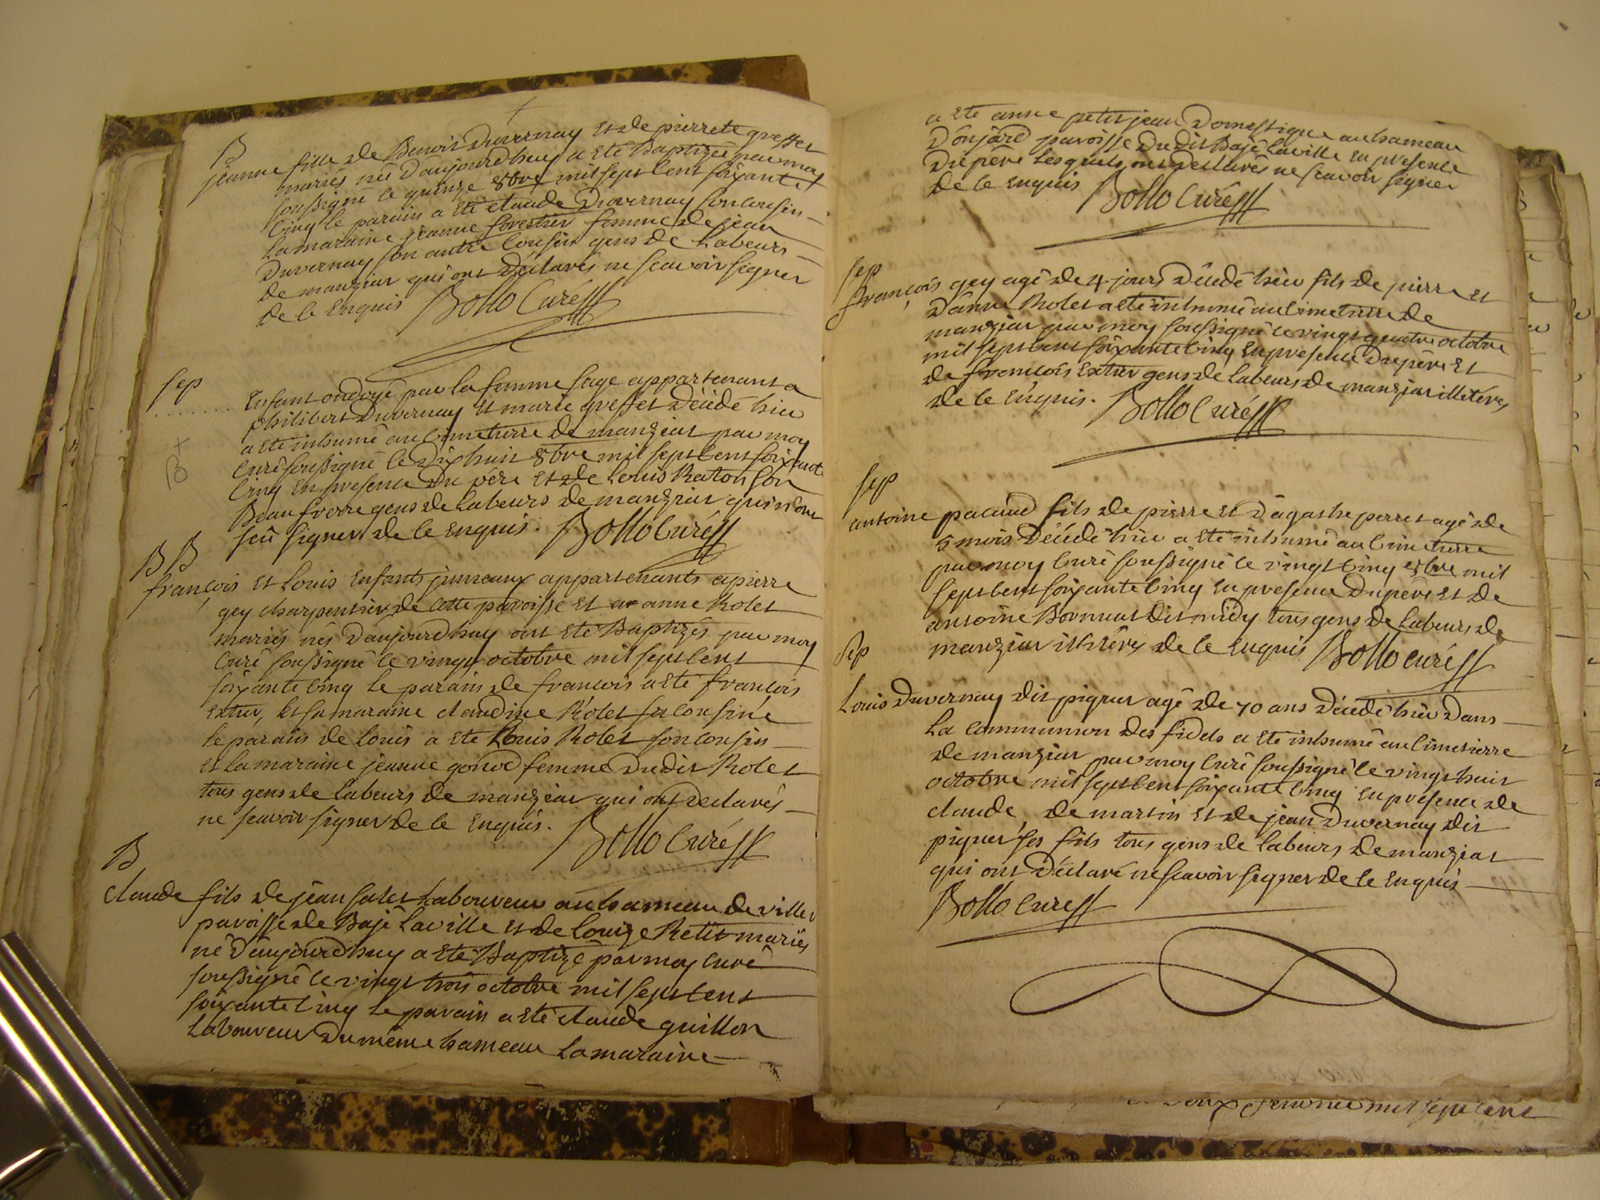 B
jeanne fille de Benoit Duvernay et de pierrete greffet
mariés née d'aujourdhuy a eté Baptizée par moy
soussigné le quinze 8bre mil sept cent soixante
cinq le parain a eté claude Duvernay son cousin
la maraine jeanne forestier femme de jean
Duvernay son autre cousin gens de Labeurs
de manziat qui ont déclarés ne scavoir signer
de ce Enquis Bollo Curé
Sep
Enfant ondoyé par la femme sage appartenant a
philibert Duvernay et marie greffet décédé hier
a eté inhumé au cimetierre de manziat par moy
curé soussigné le dixhuit 8bre mil sept cent soixante
cinq En presence du père et de Louis Raton son
Beaufrere gens de labeurs de manziat qui n'ont
sçû signer de ce enquis. Bollo Curé
B B
françois et Louis Enfants jumeaux appartenants a pierre
gey charpentier de cette paroisse et a anne Rolet
mariés nés d'aujourdhuy ont eté Baptizés par moy
curé soussigné le vingt octobre mil sept cent
soixante cinq le parain de francois a eté françois
Extier, et sa maraine claudine Rolet sa cousine
le parain de louis a eté Louis Rolet son cousin
et la maraine jeanne gonod femme dudit Rolet
tous gens de labeurs de manziat qui ont declarés
ne scavoir signer de ce Enquis. Bollo Curé
B
claude fils de jean salet Laboureur au hameau de villes
paroisse de Bajé la ville et de louize Retit mariés
né d'aujourdhuy a eté Baptizé par moy curé
soussigné le vingt trois octobre mil sept cent
soixante cinq le parain a eté claude guillon
Laboureur du même hameau la maraine
a eté anne petitjean Domestique au hameau
paroisse dudit Bajé la ville En presence
du père lesquels ont déclarés ne scavoir signer
de ce Enquis Bollo Curé
Sep
françois gey agé de 4 jours décédé hier fils de pierre et
d'anne Rolet a eté inhumé au cimetierre de
manziat par moy soussigné le vingt quatre octobre
mil sept cent soixante cinq En presence du père et
de francois Extier gens de labeurs de manziat illiterés
de ce Enquis. Bollo Curé
Sep
antoine pacaud fils de pierre et d'agathe perret agé de
5 mois décédé hier a eté inhumé au cimetierre
par moy curé soussigné le vingt cinq 8bre mil
sept cent soixante cinq En presence du père et de
antoine Bonnat dit midy tous gens de labeurs de
manziat illiterés de ce Enquis Bollo Curé
Sep
Louis Duvernay dit pigner agé de 70 ans décédé hier dans
la communion des fidels a eté inhumé au cimetierre
de manziat par moy curé soussigné le vingt huit
octobre mil sept cent soixante cinq En présence de
claude, de martin et de jean Duvernay dit
pigner ses fils tous gens de labeurs de manziat
qui ont déclaré ne scavoir signer de ce Enquis
Bollo Curé
mil sept cent